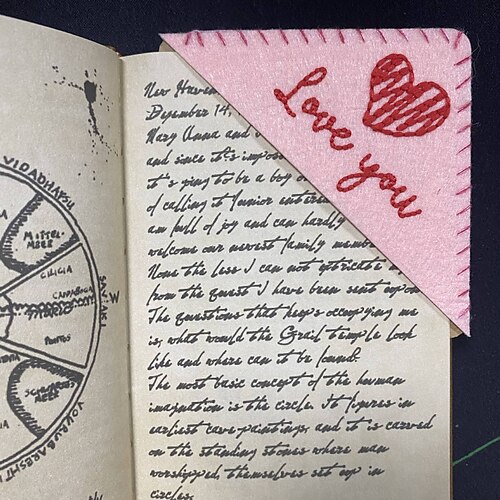 VIDADHAFSU
MITTEL-
MEER
CILICIA
CAPPADOCIA
PONTUS
SAVAHI
W
VOURUBARESHTI
Love you
New Haven
December 14,
Mary Anna and
and since it's impos
it's going to be a boy o
of calling it Junior
am full of joy and can hardly
welcome our newest family membe
None the less I can not extricate
from the quest I have been sent upon
The questions that keeps occupying me
is, what would the Grail temple look
like and where can it be found.
The most basic concept of the human
imagination is the circle. It figures in
earliest cave paintings, and it is carved
on the standing stones where man
worshipped, themselves set up in
circles.